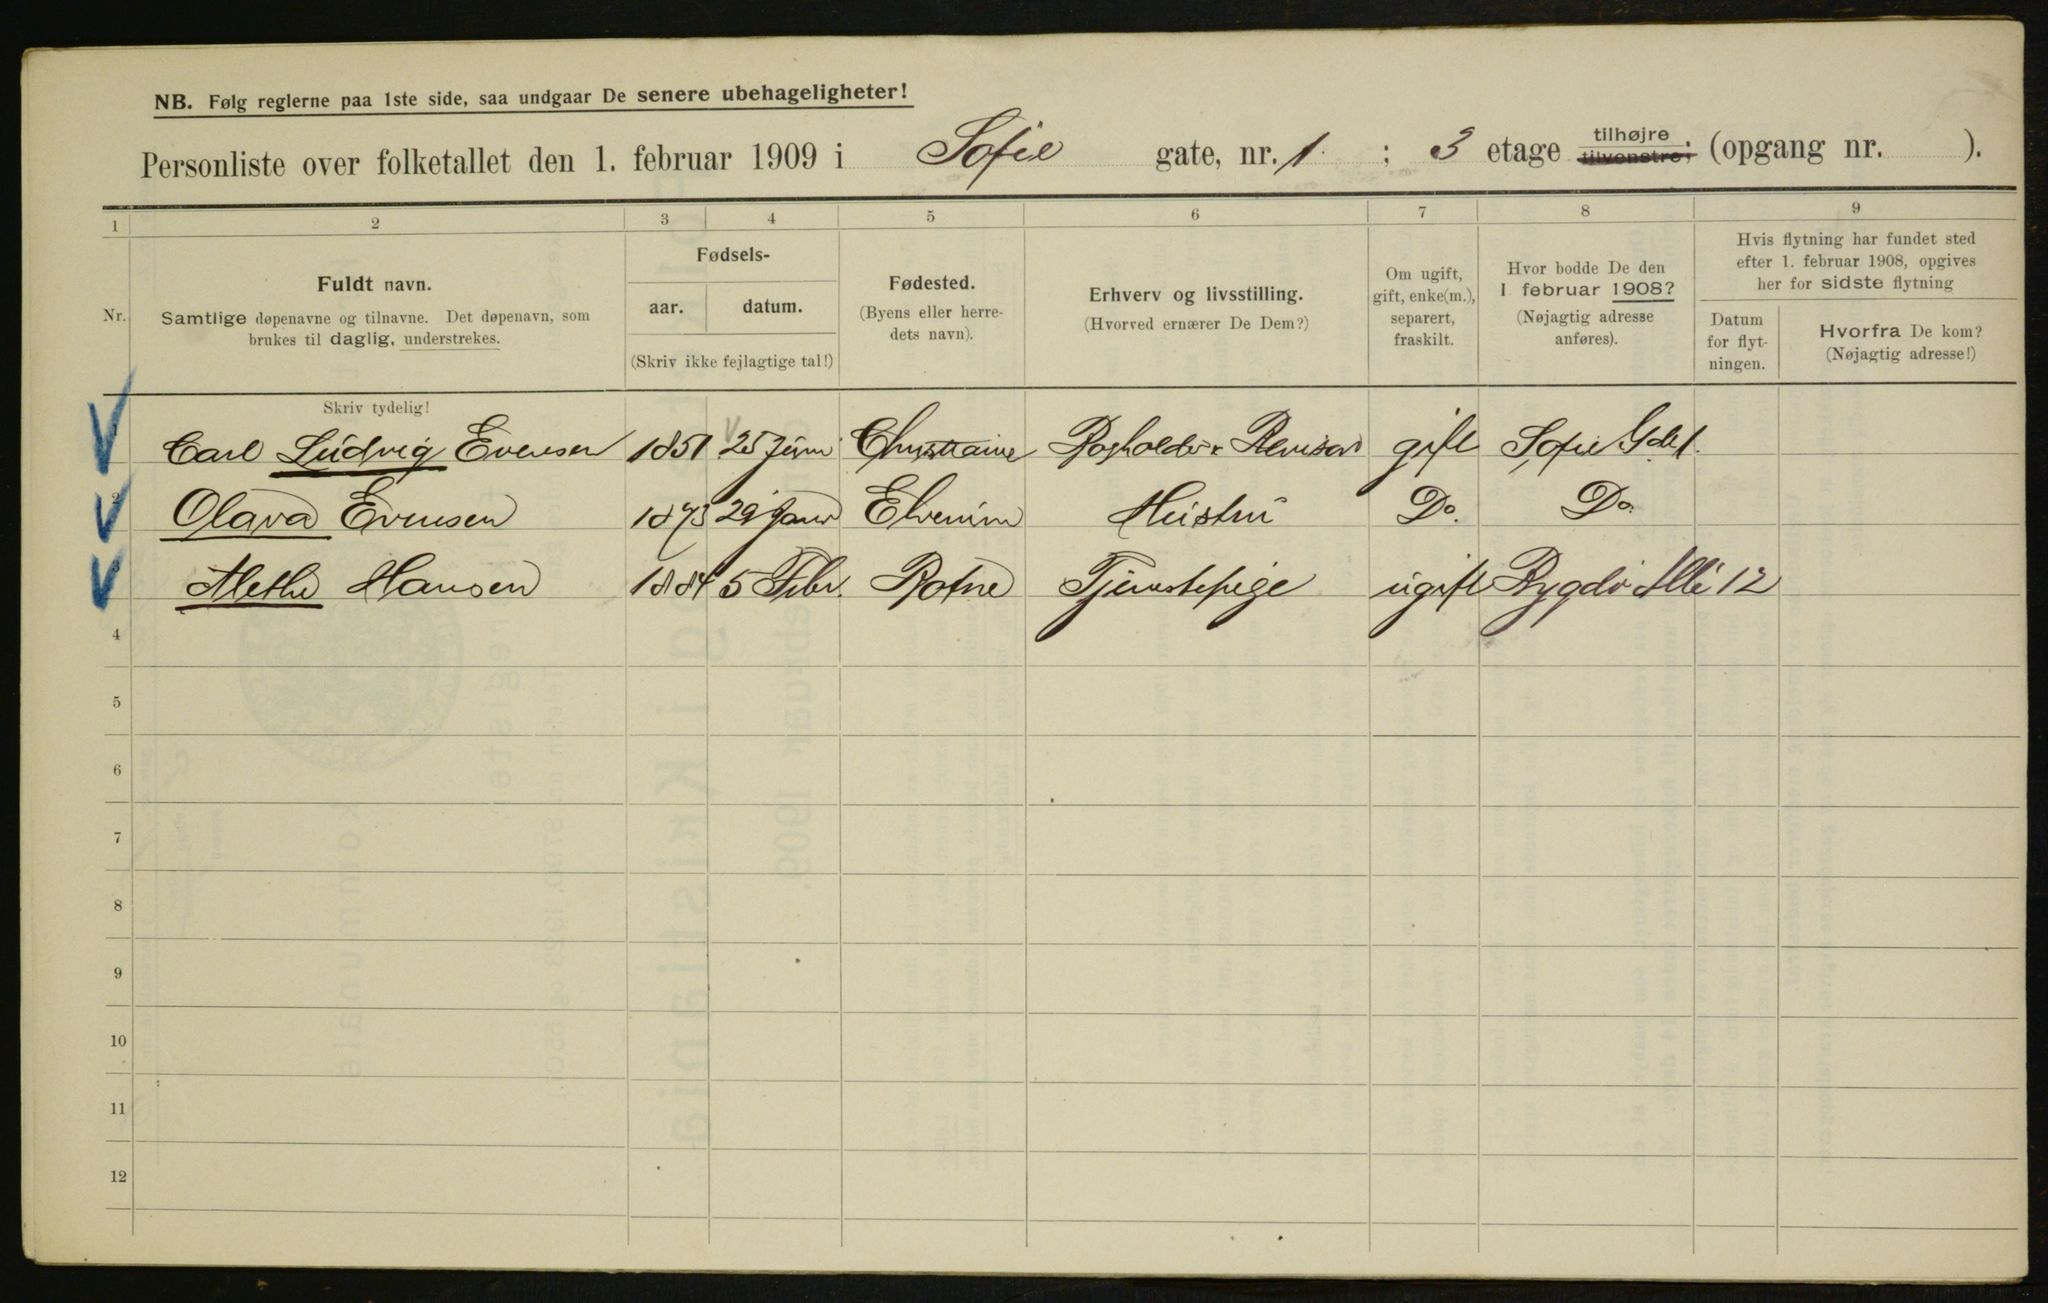 NB. Følg reglerne paa 1ste side, saa undgaar De senere ubehageligheter!
Personliste over folketallet den 1. februar 1909 i Sofie gate, nr. 1 ; 3 etage tilhøjre tilvenstre; (opgang nr. ).
1 2 3 4 5 6 7 8 9
Nr.
Fuldt navn.
Samtlige døpenavne og tilnavne. Det døpenavn, som
brukes til daglig, understrekes.
Fødsels-
aar. datum.
(Skriv ikke fejlagtige tal!)
Fødested.
(Byens eller herre-
dets navn).
Erhverv og livsstilling.
(Hvorved ernærer De Dem?)
Om ugift,
gift, enke(m.),
separert,
fraskilt.
Hvor bodde De den
1 februar 1908?
(Nøjagtig adresse
anføres).
Hvis flytning har fundet sted
efter 1. februar 1908, opgives
her for sidste flytning
Datum
for flyt-
ningen.
Hvorfra De kom?
(Nøjagtig adresse!)
Skriv tydelig!
1 Carl Ludvig Evensen 1851 25 Juni Christiania Bogholder & Revisor gift Sofie Gde 1.
2 Olava Evensen 1873 29 Janr Elverum Hustru Do. Do.
3 Methe Hansen 1884 5 Febr. Tjenestepige ugift Bygdø Allé 12
4
5
6
7
8
9
10
11
12